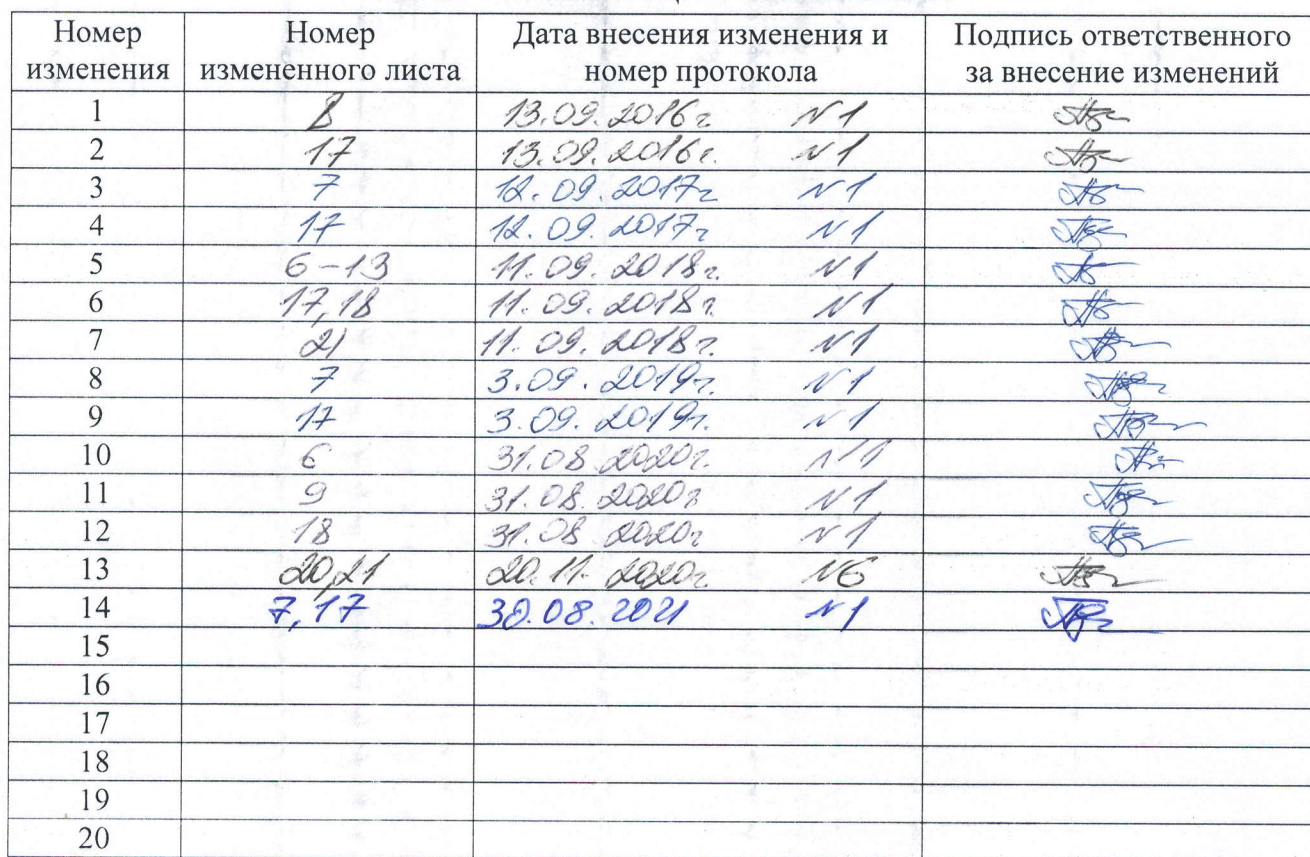 Номер изменения Номер измененного листа Дата внесения изменения и номер протокола Подпись ответственного за внесение изменений
1 8 13.09.2016г N1
2 17 13.09.2016г. N1
3 7 12.09.2017г N1
4 17 12.09.2017г N1
5 6-13 11.09.2018г. N1
6 17,18 11.09.2018г. N1
7 21 11.09.2018г. N1
8 7 3.09.2019г. N1
9 17 3.09.2019г. N1
10 6 31.08.2020г. N1
11 9 31.08.2020г N1
12 18 31.08.2020г N1
13 20,21 20.11.2020г. N6
14 7,17 30.08.2021 N1
15
16
17
18
19
20